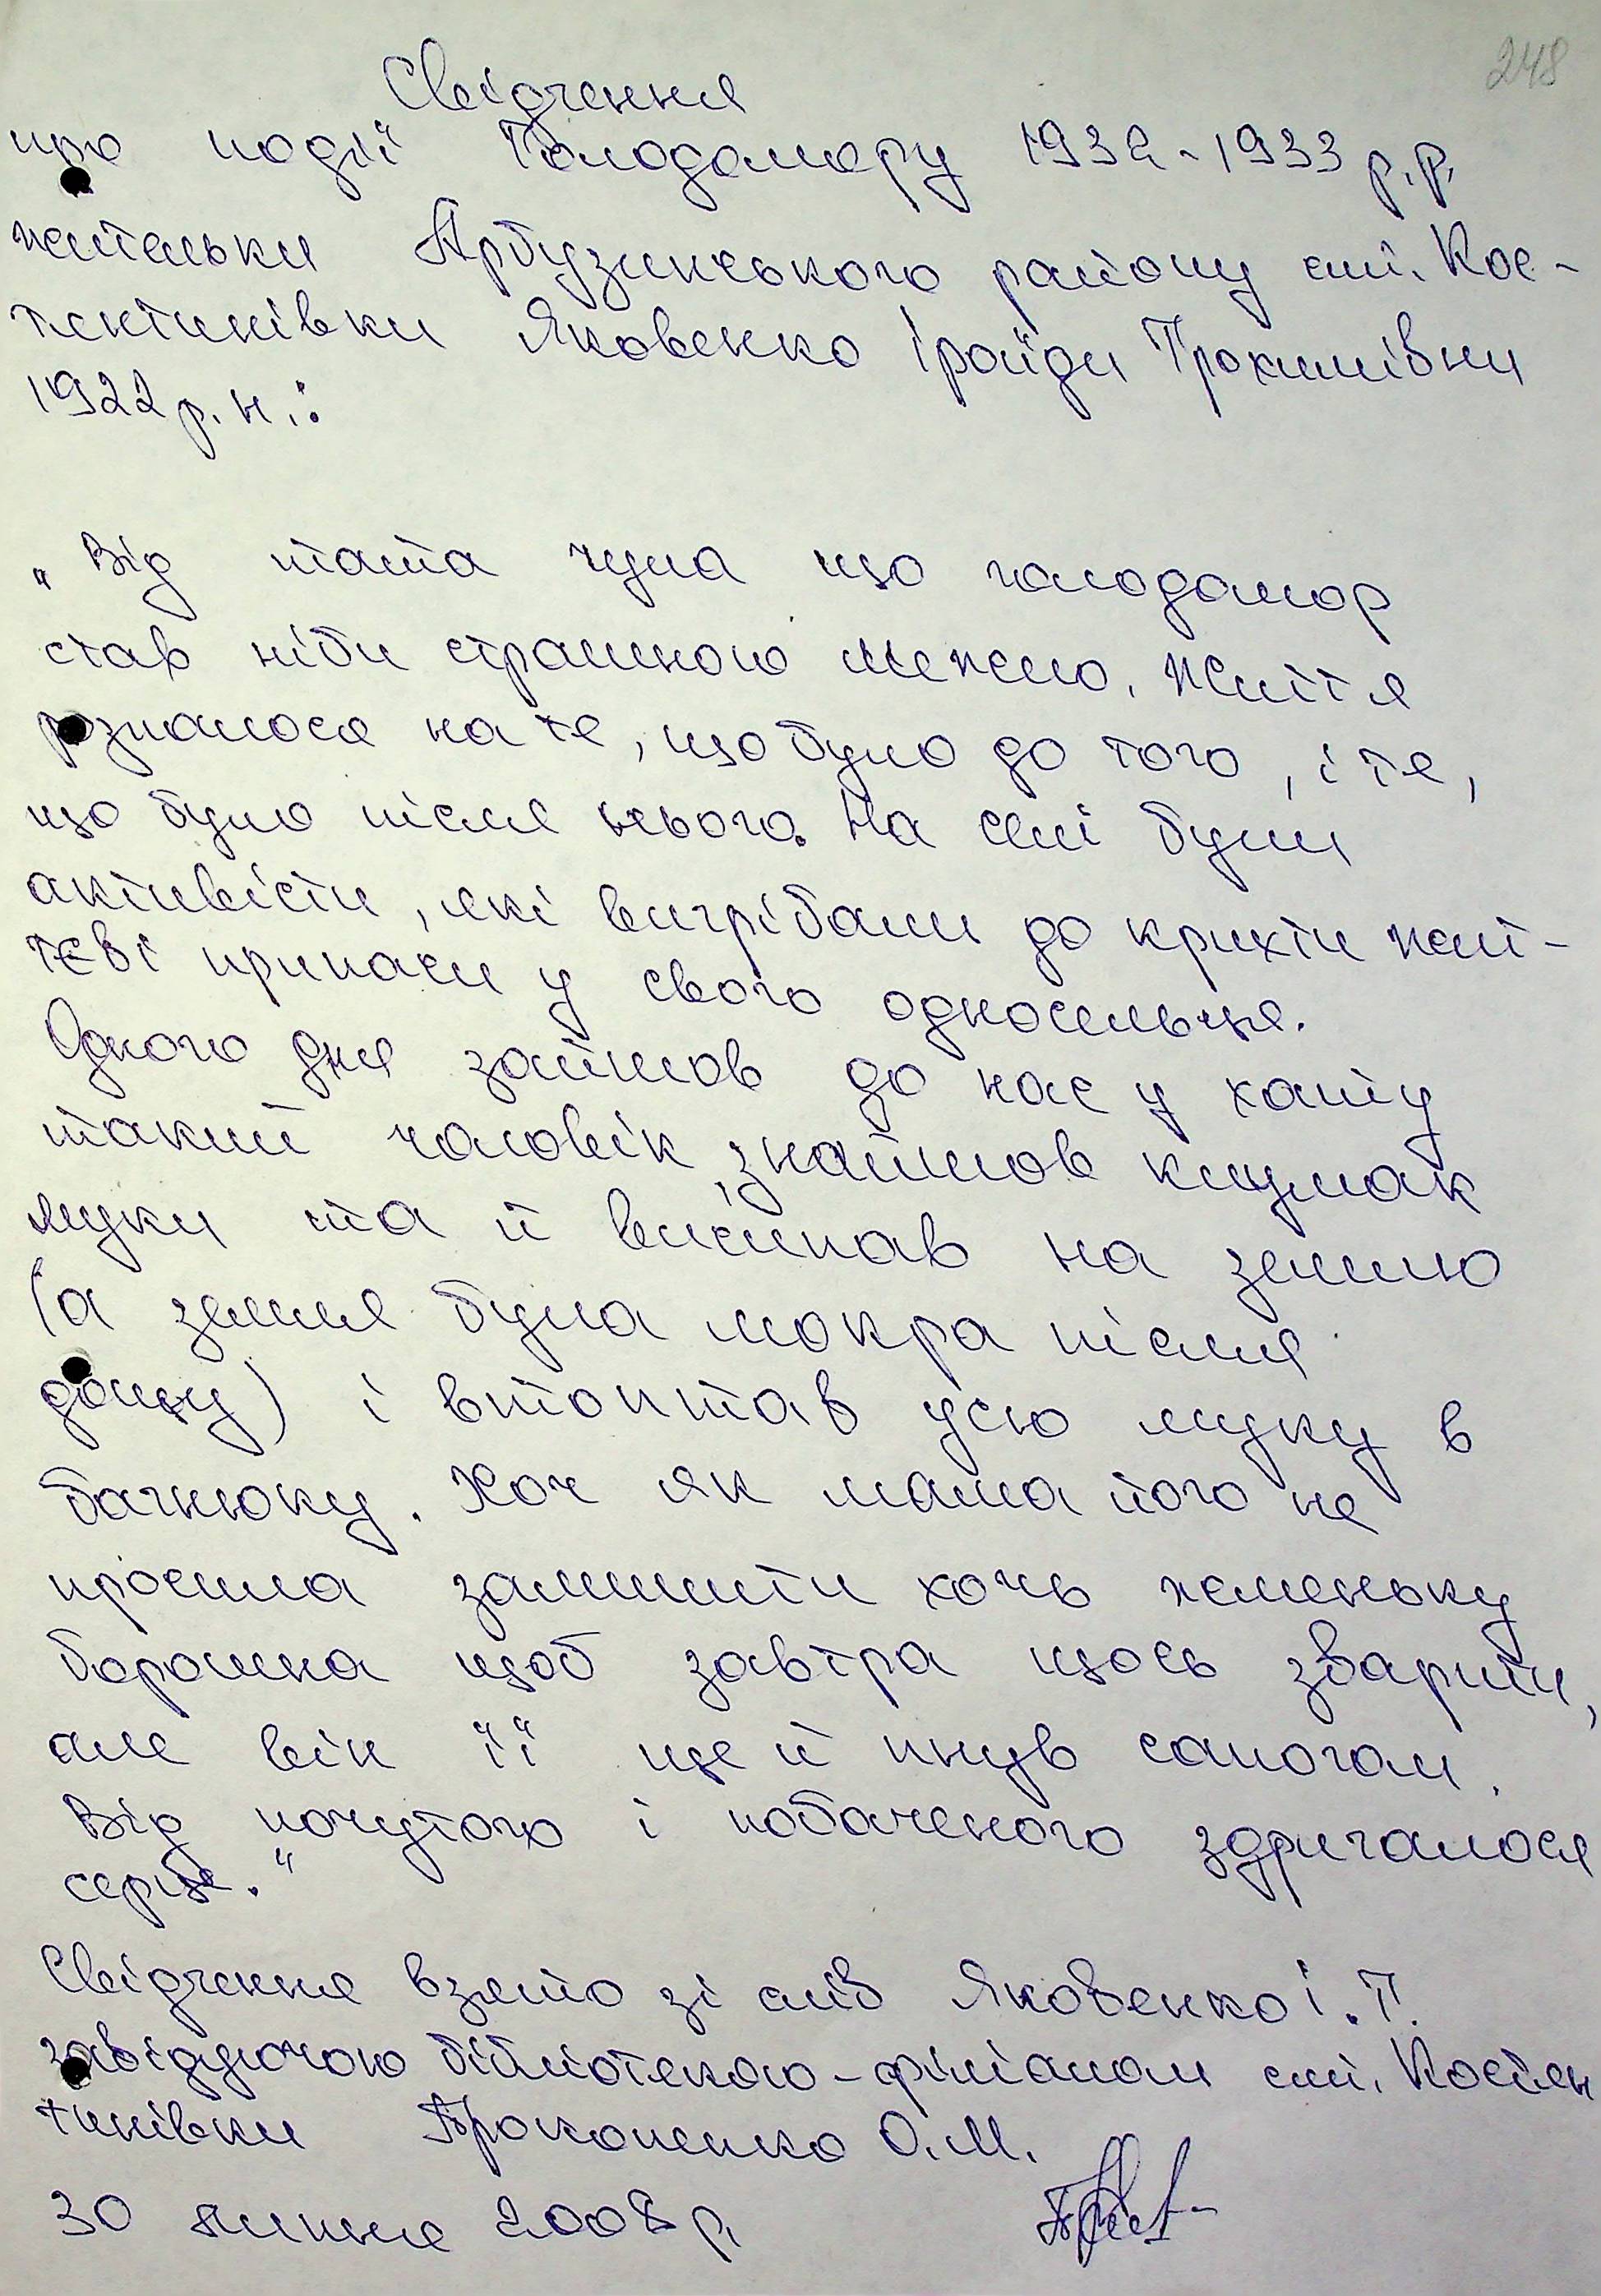 248
Свідчення
про події Голодомору 1932-1933 р.р.
жительки Арбузинського району смт. Кос-
тянтинівки Яковенко Іроїди Трохимівни
1922 р.н.:
„Від тата чула що голодомор
став ніби страшною межею. Життя
розпалося на те, що було до того, і те,
що було після нього. На селі були
активісти, які вигрібали до крихти жит-
тєві припаси у свого односельця.
Одного дня зайшов до нас у хату
такий чоловік, знайшов клумак
муки та й висипав на землю
(а земля була мокра після
дощу) і втоптав усю муку в
багнюку. Хоч як мама його не
просила залишити хочь жменьку
борошна щоб завтра щось зварити,
але він її ще й пнув сапогом.
Від почутого і побаченого здригалося
серце."
Свідчення взято зі слів Яковенко І.Т.
завідуючою бібліотекою-філіалом смт. Костян
тинівки Прокопенко О.М.
30 липня 2008 р.